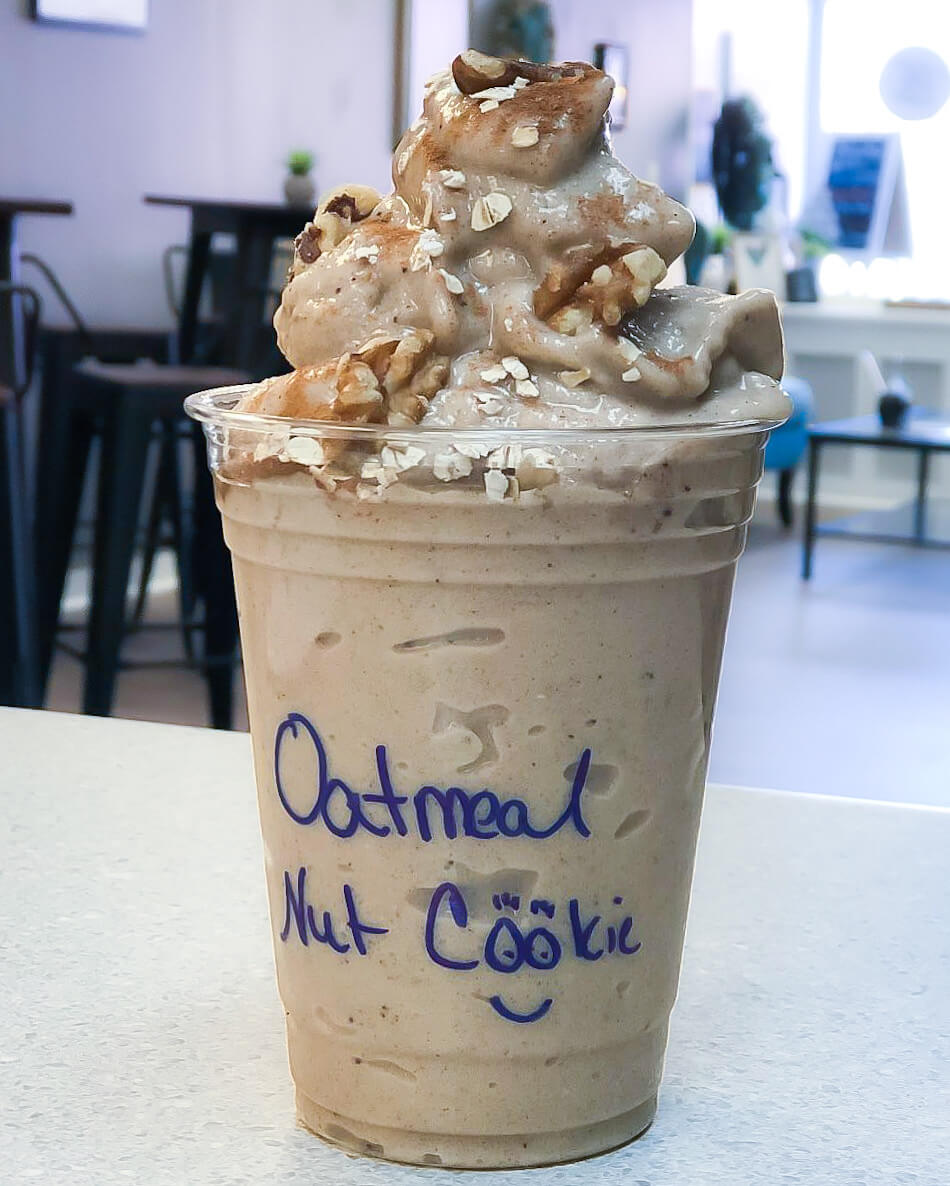 Oatmeal
Nut Cookie